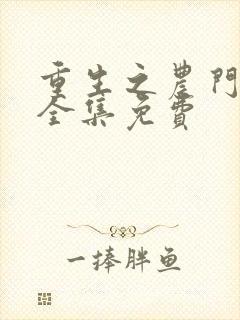 重生之农門
全集免費
一捧胖鱼